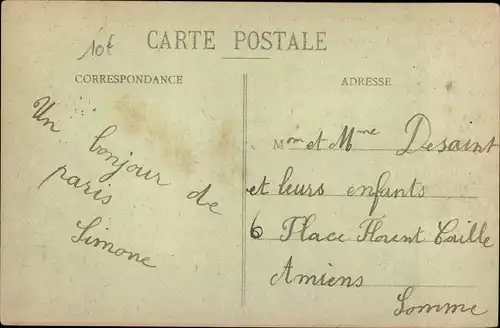 10f
CARTE POSTALE
CORRESPONDANCE
ADRESSE
Un bonjour de
paris
Simone
Mon et Mme Desaint
et leurs enfants
6 Place Florent Caille
Amiens
Somme